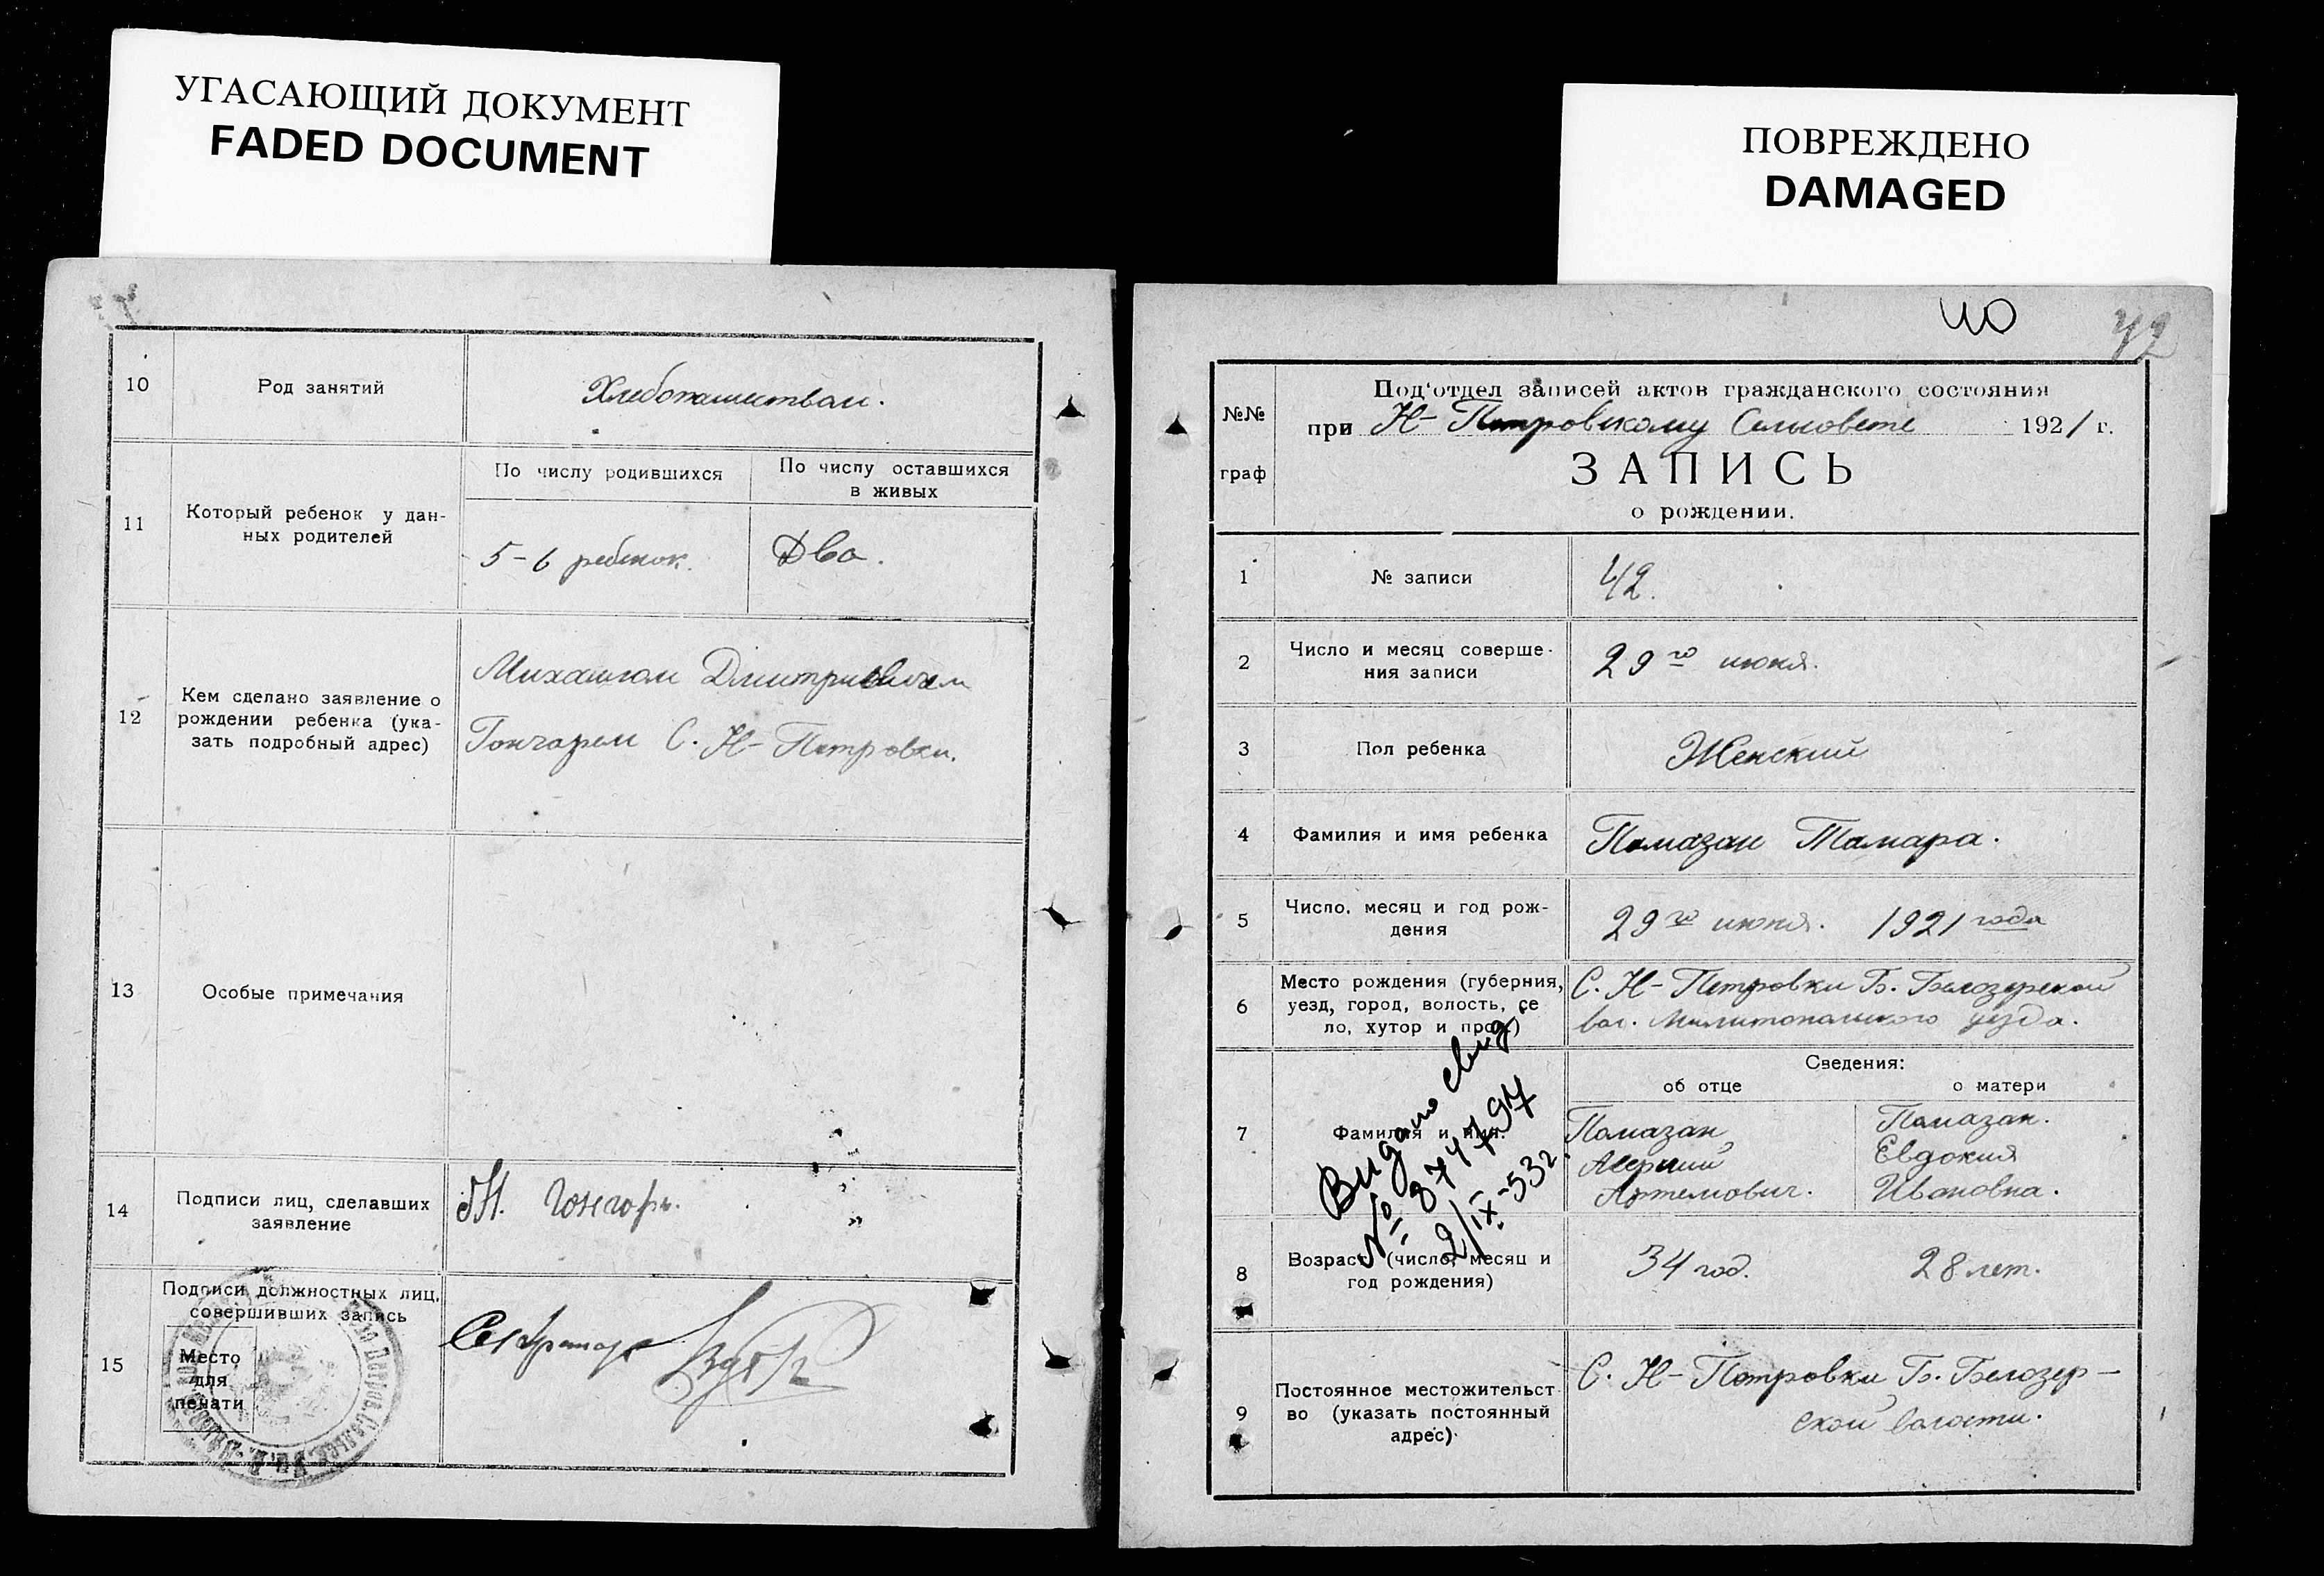 УГАСАЮЩИЙ ДОКУМЕНТ
FADED DOCUMENT
10
Род занятий
Хлебопашеством.
11
Который ребенок у дан-
ных родителей
По числу родившихся
По числу оставшихся
в живых
5-6 ребенок.
Два.
12
Кем сделано заявление о
рождении ребенка (ука-
зать подробный адрес)
Михаилом Дмитриевичем
Гончарем С. Н-Петровки.
13
Особые примечания
14
Подписи лиц, сделавших
заявление
М. Гончарь.
15
Подписи должностных лиц,
совершивших запись
Место
для
печати
Секретарь
ПОВРЕЖДЕНО
DAMAGED
40
42
№№
граф
Под'отдел записей актов гражданского состояния
при Н-Петровскому Сельсовете 1921 г.
ЗАПИСЬ
о рождении.
1
№ записи
42.
2
Число и месяц соверше-
ния записи
29го июня.
3
Пол ребенка
Женский
4
Фамилия и имя ребенка
Помазан Тамара.
5
Число, месяц и год рож-
дения
29го июня. 1921 года
6
Место рождения (губерния,
уезд, город, волость, се
ло, хутор и проч.)
С. Н-Петровки Б. Белозерской
вол. Мелитопольского уезда.
Сведения:
об отце
о матери
7
Фамилия и имя.
Помазан
Аверкий
Артемович.
Помазан.
Евдокия
Ивановна.
Видано свид.
№ 874797
2/IX-53г.
8
Возраст (число, месяц и
год рождения)
34 год.
28 лет.
9
Постоянное местожительст
во (указать постоянный
адрес)
С. Н-Петровки Б. Белозер-
ской волости.